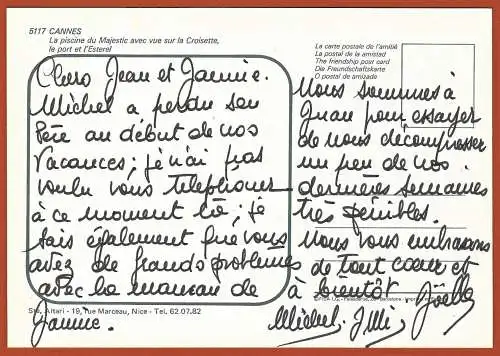 5117 CANNES
La piscine du Majestic avec vue sur la Croisette,
le port et l'Esterel
La carte postale de l'amitié
La postal de la amistad
The friendship post card
Die Freundschaftskarte
O postal de amizade
Chers Jean et Jannie.
Michel a perdu son
Père au début de nos
Vacances ; je n'ai pas
voulu vous téléphoner
à ce moment là ; je
sais également que vous
avez de grands problèmes
avec la maman de
Jannie.
Nous sommes à
Juan pour essayer
de nous décompresser
un peu de nos
dernières semaines
très pénibles.
Nous vous embrassons
de tout cœur et
à bientôt Joëlle
Michel.
Sté. Altari - 19, rue Marceau, Nice - Tel. 62.07.82